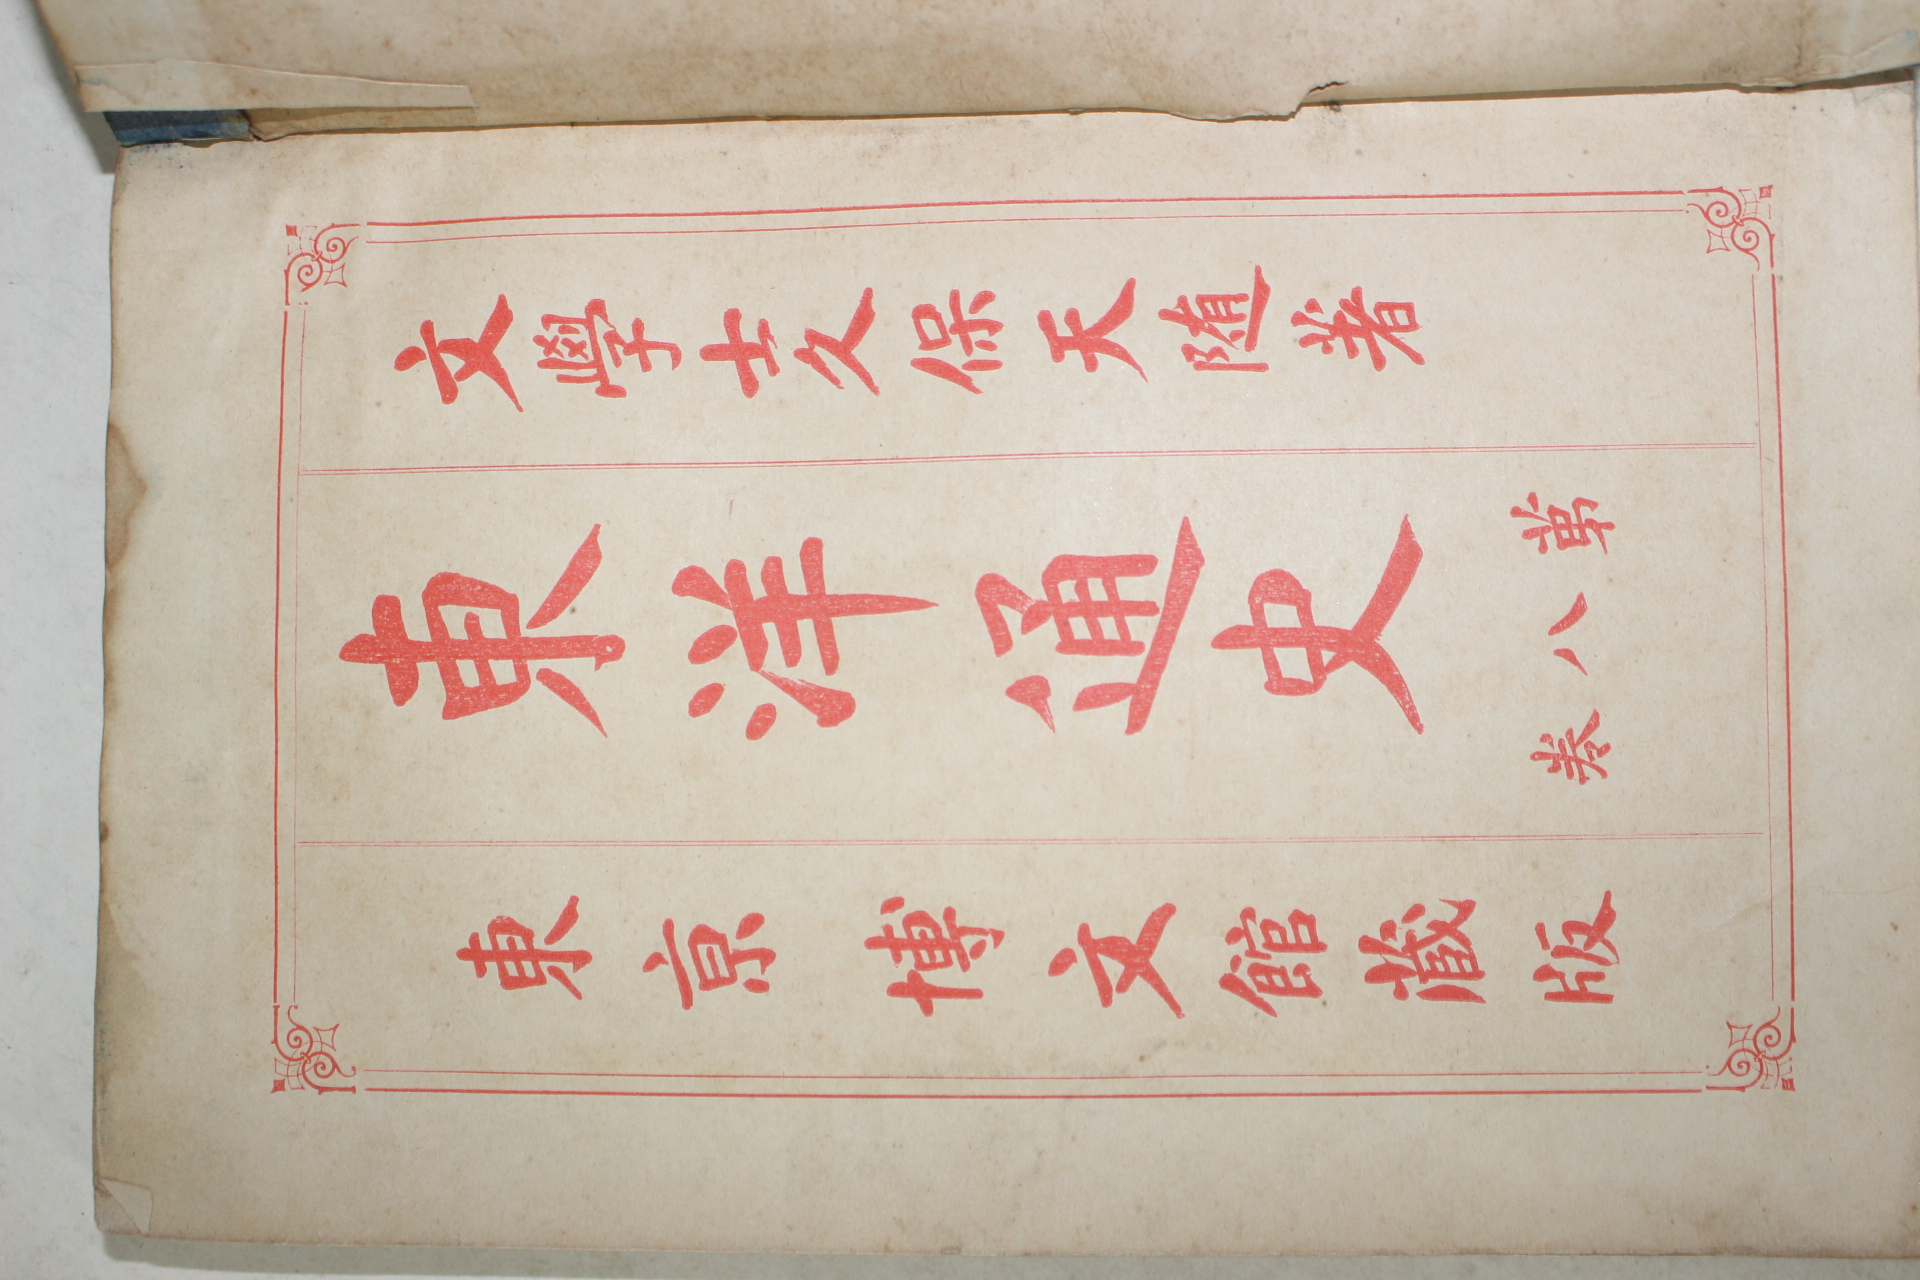 文學士久保天隨著
東洋通史 第八卷
東京博文館藏版